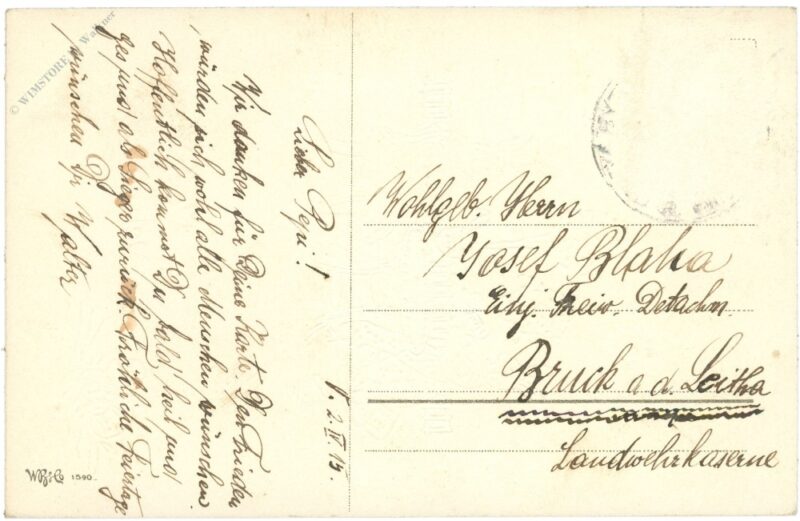 V. 2. IV 15.
Lieber Pepi!
Wir danken für Deine Karte. Den Frieden
würden sich wohl alle Menschen wünschen.
Hoffentlich kommst Du bald heil und
gesund als Sieger zurück. Fröhliche Feiertage
wünschen Dir Walter
Wohlgeb. Herrn
Josef Blaha
Einj. Freiw. Detachm.
Bruck a. d. Leitha
Landwehrkaserne
W.R.B.&Co 1590.
© WIMSTORE